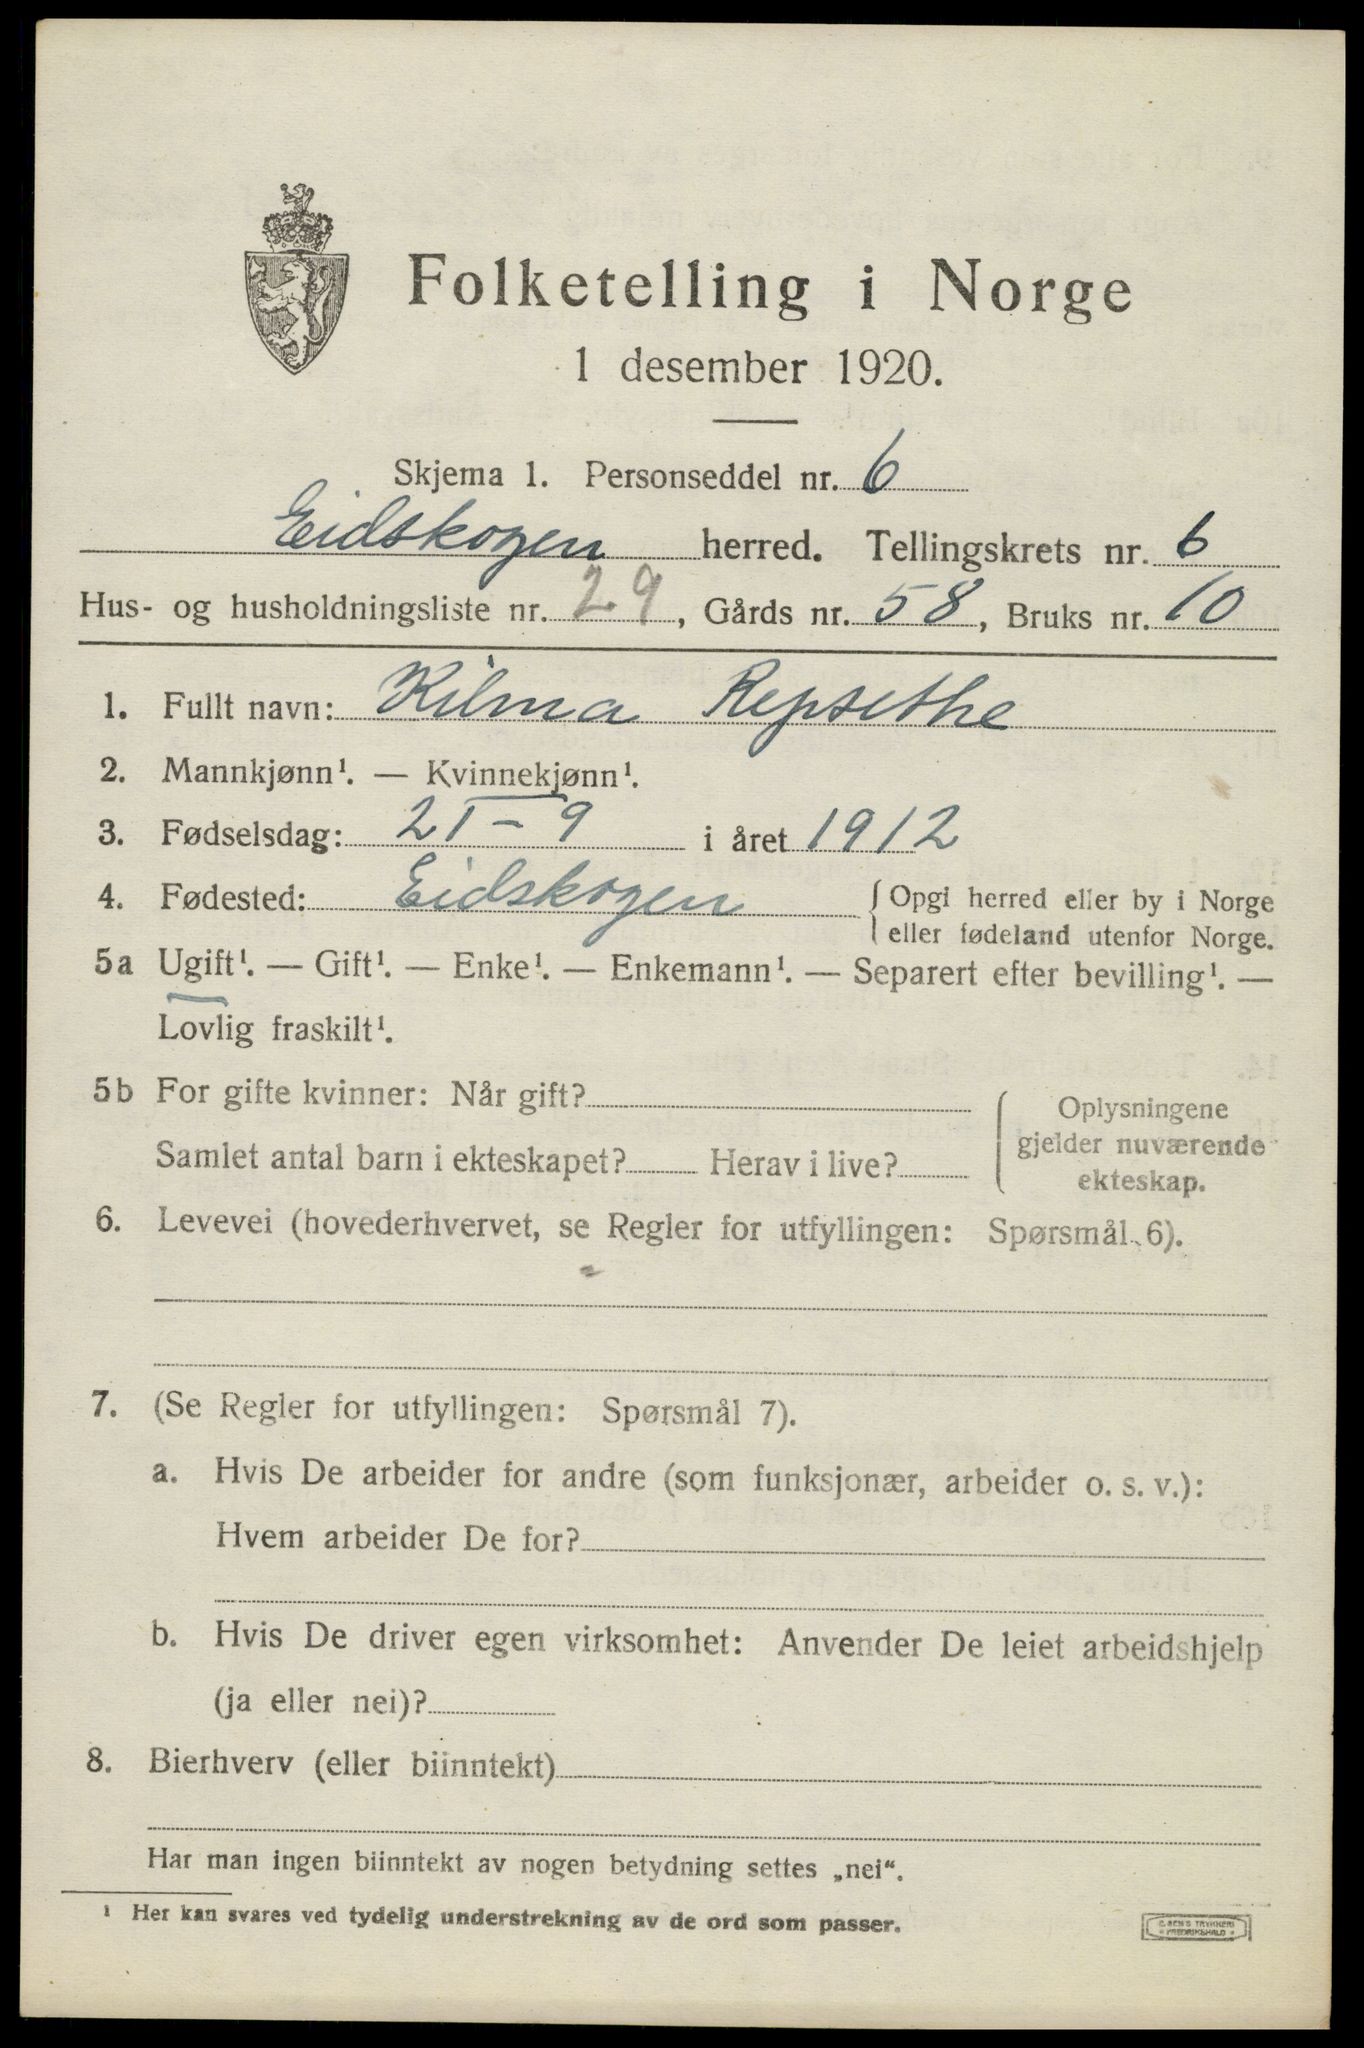 Folketelling i Norge
1 desember 1920.
Skjema 1. Personseddel nr. 6
Eidskogen herred. Tellingskrets nr. 6
Hus- og husholdningsliste nr. 29, Gårds nr. 58, Bruks nr. 10
1. Fullt navn: Hilma Repsethe
2. Mannkjønn¹. — Kvinnekjønn¹.
3. Fødselsdag: 21-9 i året 1912
4. Fødested: Eidskogen { Opgi herred eller by i Norge
eller fødeland utenfor Norge.
5a Ugift¹. — Gift¹. — Enke¹. — Enkemann¹. — Separert efter bevilling¹. —
Lovlig fraskilt¹.
5b For gifte kvinner: Når gift?
Samlet antal barn i ekteskapet? Herav i live?
Oplysningene
gjelder nuværende
ekteskap.
6. Levevei (hovederhvervet, se Regler for utfyllingen: Spørsmål 6).
7. (Se Regler for utfyllingen: Spørsmål 7).
a. Hvis De arbeider for andre (som funksjonær, arbeider o. s. v.):
Hvem arbeider De for?
b. Hvis De driver egen virksomhet: Anvender De leiet arbeidshjelp
(ja eller nei)?
8. Bierhverv (eller biinntekt)
Har man ingen biinntekt av nogen betydning settes „nei“.
¹ Her kan svares ved tydelig understrekning av de ord som passer.
TRYKKERI
FREDRIKSHALD